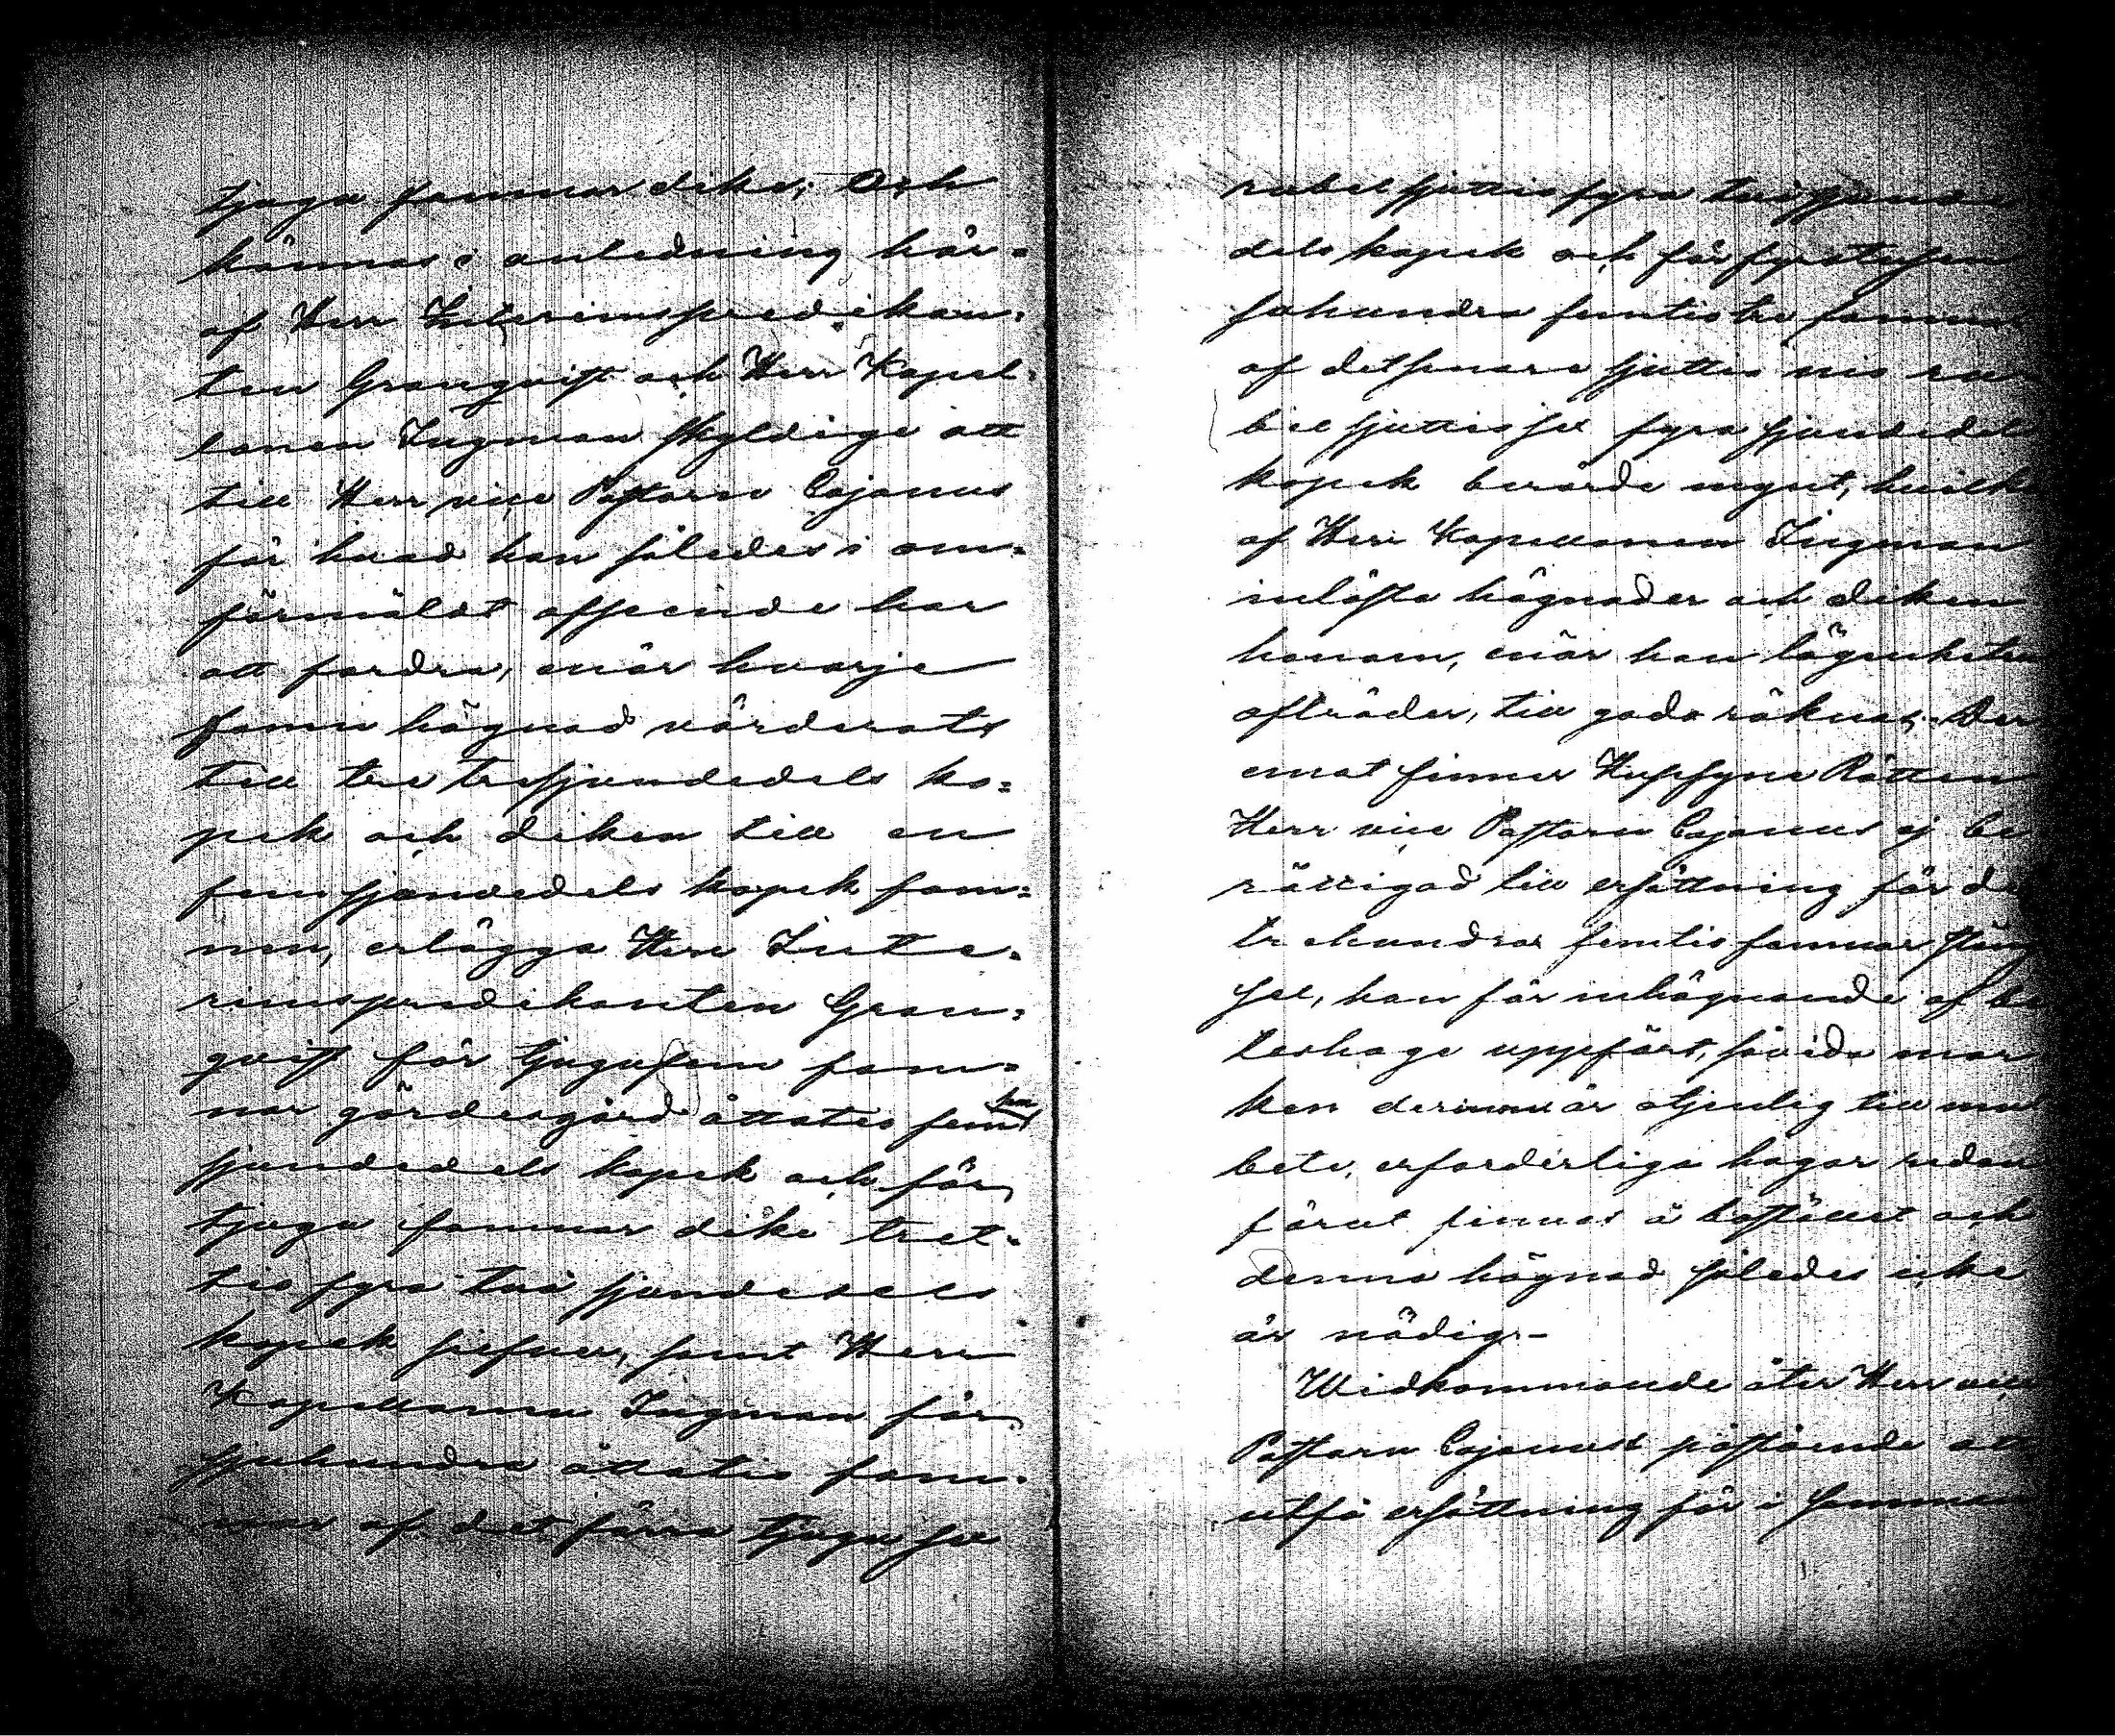 tjugu famnar dike; Och
kännas i anledning här-
af Herr Interimspredikan-
ten Granqvist och Herr Kapel-
lanen Ingman skyldige att
till Herr vice Pastorn Cajanus
för hvad han således i om-
förmäldt afseende har
att fordra, enär hvarje
famn hägnad värderats
till tre tresjundedels ko-
pek och diken till en
femsjundedels kopek fam-
nen, erlägga Herr Inte-
rimspredikanten Gran-
qvist för tjugufem fam-
nar gärdesgård åttatio fem fem
sjundedels kopek och för
tjugu famnar dike tret-
tio fyra två sjundedels
kopek silfver, samt Herr
Kapellanen Ingman för
sjuhundra åttatio fam-
nar af det förra tjugu sex
rubel sjuttio fyra två sjunde
dels kopek och för fyratusen
sexhundra femtio tre famnar
af det senare sjuttio nio ru
bel sjuttio sex fyra sjundedels
kopek berörde mynt, hvilka
af Herr Kapellanen Ingman
inlösta hägnader och diken
honom, när han lägenheten
afträder, till godo räknas. Der
emot finner Husesyns Rätten
Herr vice Pastorn Cajanus ej be
rättigad till ersättning för de
trehundra femtio famnar stäng
sel, han för inhägnande af be
teshage uppfört, såvida mar
ken derinom är otjenlig till mul
bete, erforderliga hagar redan
förut finnas å bostället och
denna hägnad således icke
är nödig.-
Widkommande åter Herr vice
Pastorn Cajanus påstående att
utfå ersättning för i